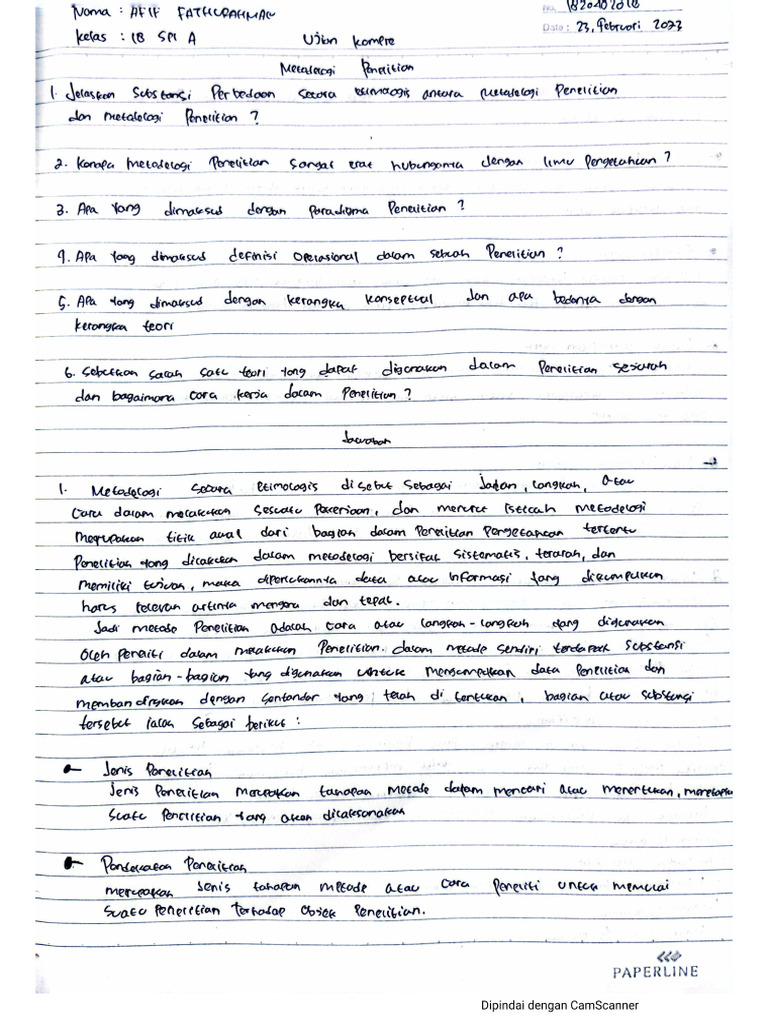 Nama : AFIF FATHURAHMAN
No. 1820402018
Kelas : 18 SPI A
Date : 23, Februari 2023
Ujian Kompre
Metodelogi Penelitian
1. Jelaskan Substansi Perbedaan secara etimologis antara Metodelogi Penelitian
dan metodelogi Penelitian ?
2. Kenapa Metodelogi Penelitian sangat erat hubungannya dengan Ilmu Pengetahuan ?
3. Apa yang dimaksud dengan Paradigma Penelitian ?
4. Apa yang dimaksud definisi Operasional dalam sebuah Penelitian ?
5. Apa yang dimaksud dengan kerangka konseptual dan apa bedanya dengan
kerangka teori
6. Sebutkan salah satu teori yang dapat digunakan dalam Penelitian sejarah
dan bagaimana cara kerja dalam Penelitian ?
Jawaban
1. Metodelogi secara Etimologis disebut sebagai Jalan, langkah, atau
Cara dalam melakukan sesuatu Pekerjaan, dan menurut Istilah metodelogi
merupakan titik awal dari bagian dalam Penelitian Pengetahuan tertentu
Penelitian yang dilakukan dalam metodelogi bersifat sistematis, terarah, dan
Memiliki tujuan, maka diperlukannya data atau informasi yang dikumpulkan
harus relevan artinya mengena dan tepat.
Jadi metode Penelitian adalah cara atau langkah-langkah yang digunakan
Oleh Peneliti dalam melakukan Penelitian. dalam metode sendiri terdapat substansi
atau bagian-bagian yang digunakan untuk mengumpulkan data Penelitian dan
membandingkan dengan Santandar yang telah di tentukan, bagian atau substansi
tersebut ialah sebagai berikut :
- Jenis Penelitian
Jenis Penelitian merupakan tahapan Metode dalam mencari atau menentukan, menetapkan
Suatu Penelitian yang akan dilaksanakan
- Pendekatan Penelitian
merupakan Jenis tahapan metode atau cara Peneliti untuk memulai
Suatu Penelitian terhadap objek Penelitian.
PAPERLINE
Dipindai dengan CamScanner